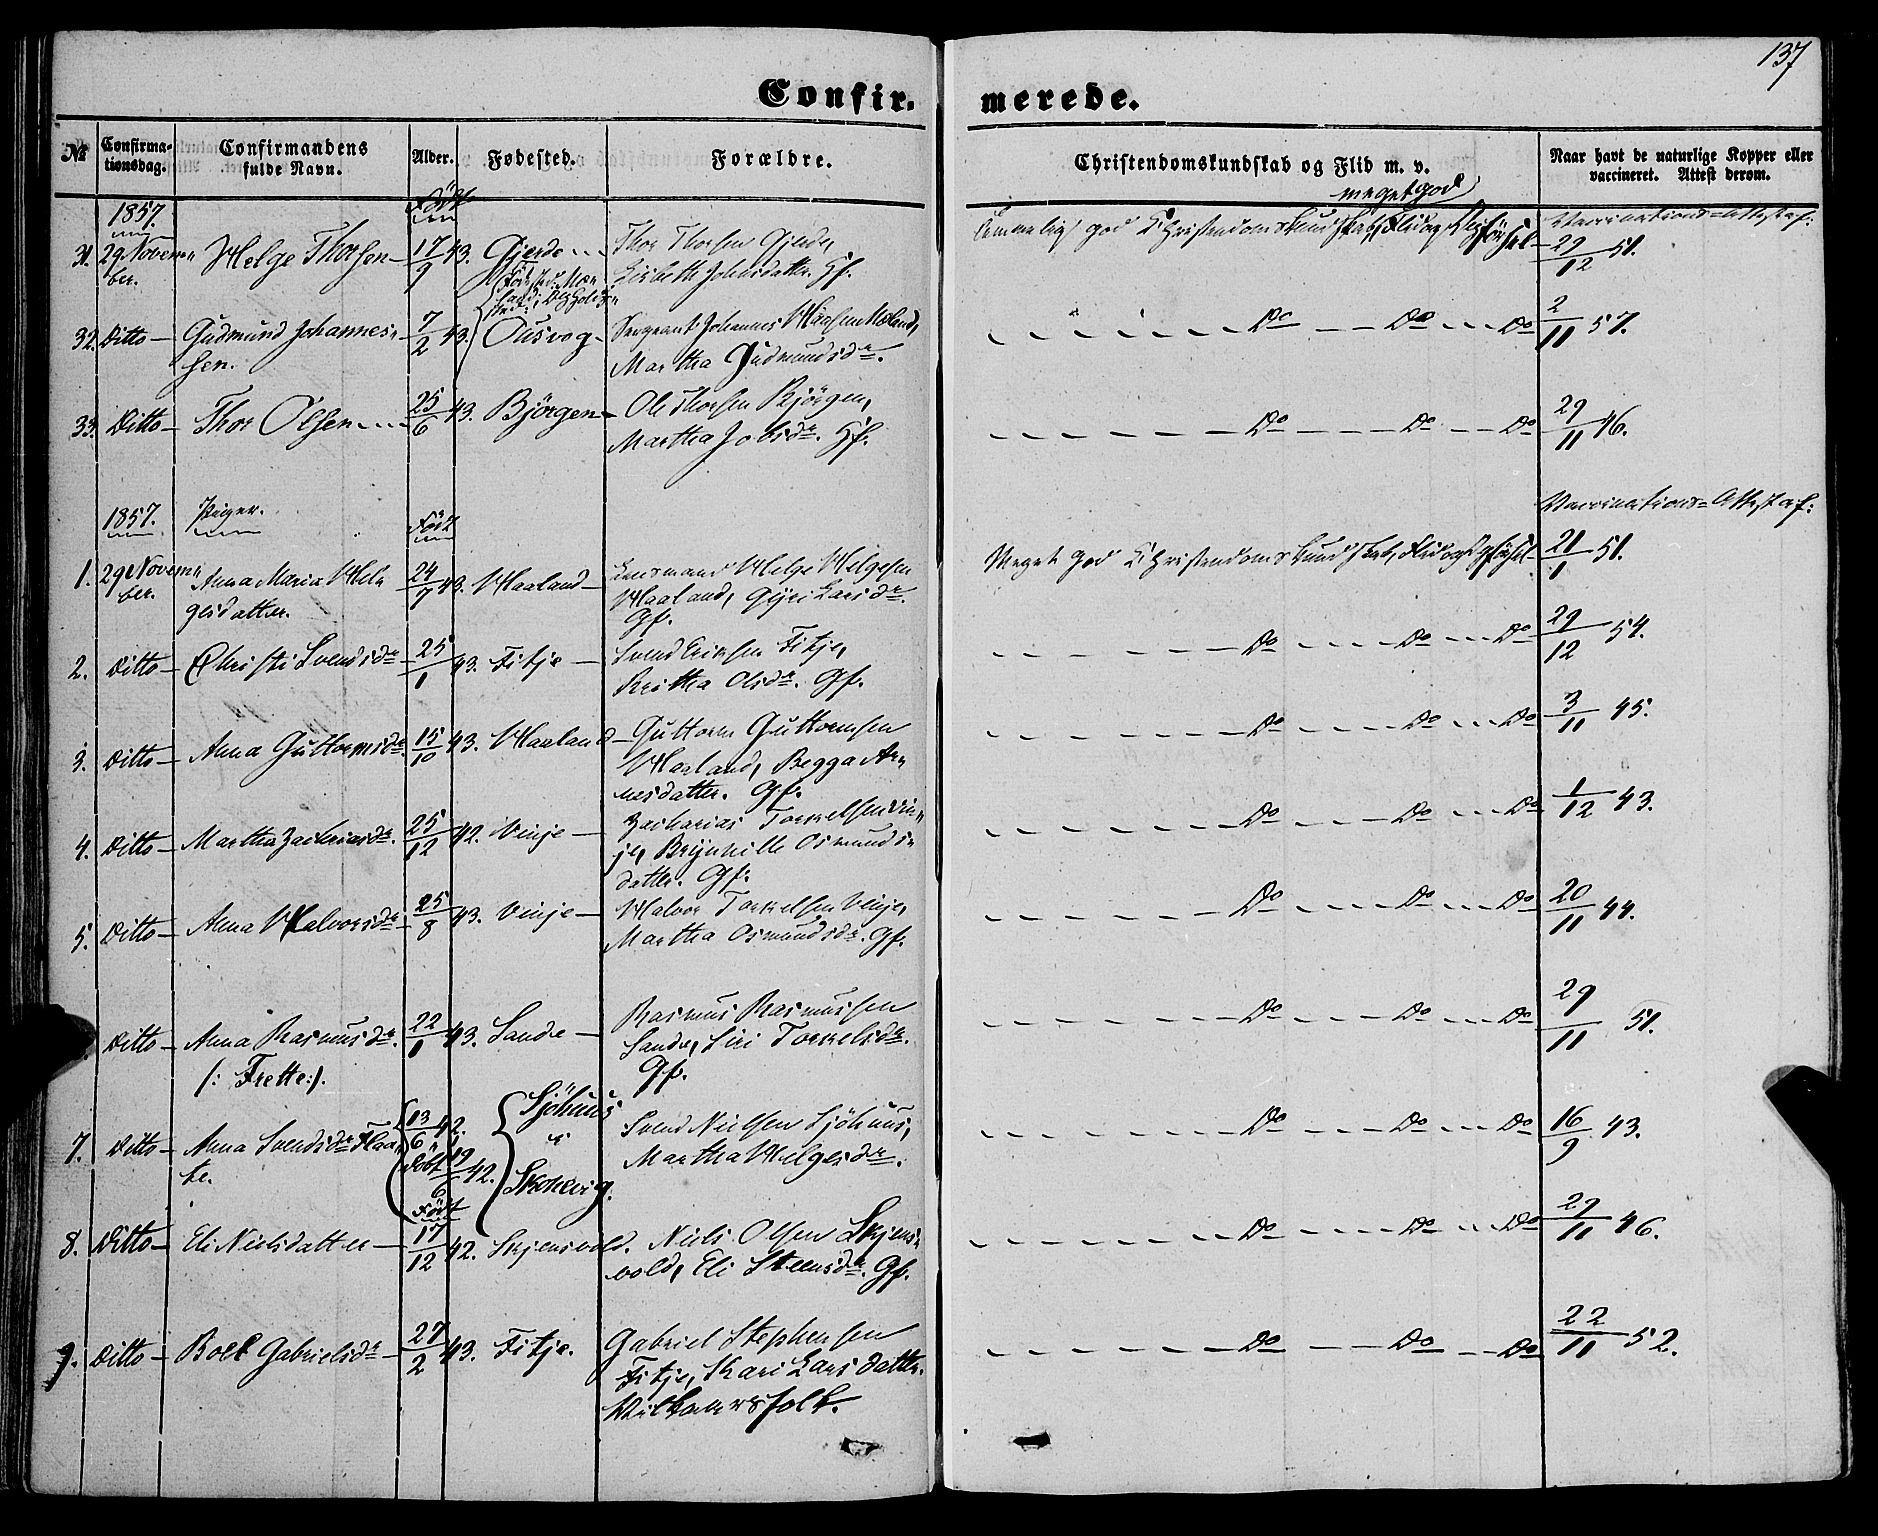 137
Confir.
merede.
№ Confirma-
tionsdag. Confirmandens
fulde Navn. Alder. Fødested. Forældre. Christendomskundskab og Flid m. v. Naar havt de naturlige Kopper eller
vaccineret. Attest derom.
1857. Född meget god Vaccinations=Attest af:
31. 29 Novem„
ber. Helge Thorsen 17/9 43. Gjerde Thor Thorsen Gjerde,
Lisbeth Johnsdatter. Gf. Temmelig god Christendomskundskab, Flid og Opførsel 29/12 51.
32. Ditto Gudmund Johannes„
sen. 7/2 43. Ousvog Sergeant Johannes Meland,
Martha Gudmundsdr. Do Do Do 2/11 57.
33. Ditto Thor Olsen 25/6 43. Bjørgen Ole Thorsen Bjørgen,
Martha Jobsdr. Gf. Do Do Do 29/11 46.
1857. Piger. Född Vaccinations=Attest af:
1. 29 Novem„
ber. Anna Maria Hel„
gesdatter. 24/7 43. Haaland Lensmand Helge Helgesen
Haaland, Gyri Larsdr.
Gf. Meget god Christendomskundskab, Flid og Opførsel 21/1 51.
2. Ditto Christi Svendsdr 25/1 43. Fitje Svend Ericksen Fitje,
Britha Olsdr. Gf. Do Do Do 29/12 54.
3. Ditto Anna Guttormsdr 15/10 43. Haaland Guttorm Guttormsen
Haaland, Begga Ar„
nesdatter. Gf. Do Do Do 3/11 45.
4. Ditto Martha Zachariasdr. 25/12 42. Vinje Zacharias Torkelsen Vin„
je, Brynhille Osmunds„
datter. Gf. Do Do Do 1/12 43.
5. Ditto Anna Halvorsdr 25/8 43. Vinje Halvor Torkelsen Vinje,
Martha Osmundsdr. Gf. Do Do Do 20/11 44.
Ditto Anna Rasmusdr.
/: Frette:/. 22/1 43. Sande Rasmus Rasmussen
Sande, Siri Torkelsdr.
Gf. Do Do Do 29/11 51.
7. Ditto Anna Svendsdr Flaa„
te. 13/6 42.
Döbt 19/6 42. Sjöhuus
i
Skonevig. Svend Nielsen Sjöhuus,
Martha Helgesdr. Do Do Do 16/9 43.
Född
8. Ditto Eli Nielsdatter 17/12 42. Skjensvold. Niels Olsen Skjens„
vold, Eli Steensdr. Gf. Do Do Do 29/11 46.
9. Ditto Boel Gabrielsdr 27/2 43. Fitje. Gabriel Stephensen
Fitje, Kari Larsdatter.
Huusmandsfolk. Do Do Do 22/11 52.